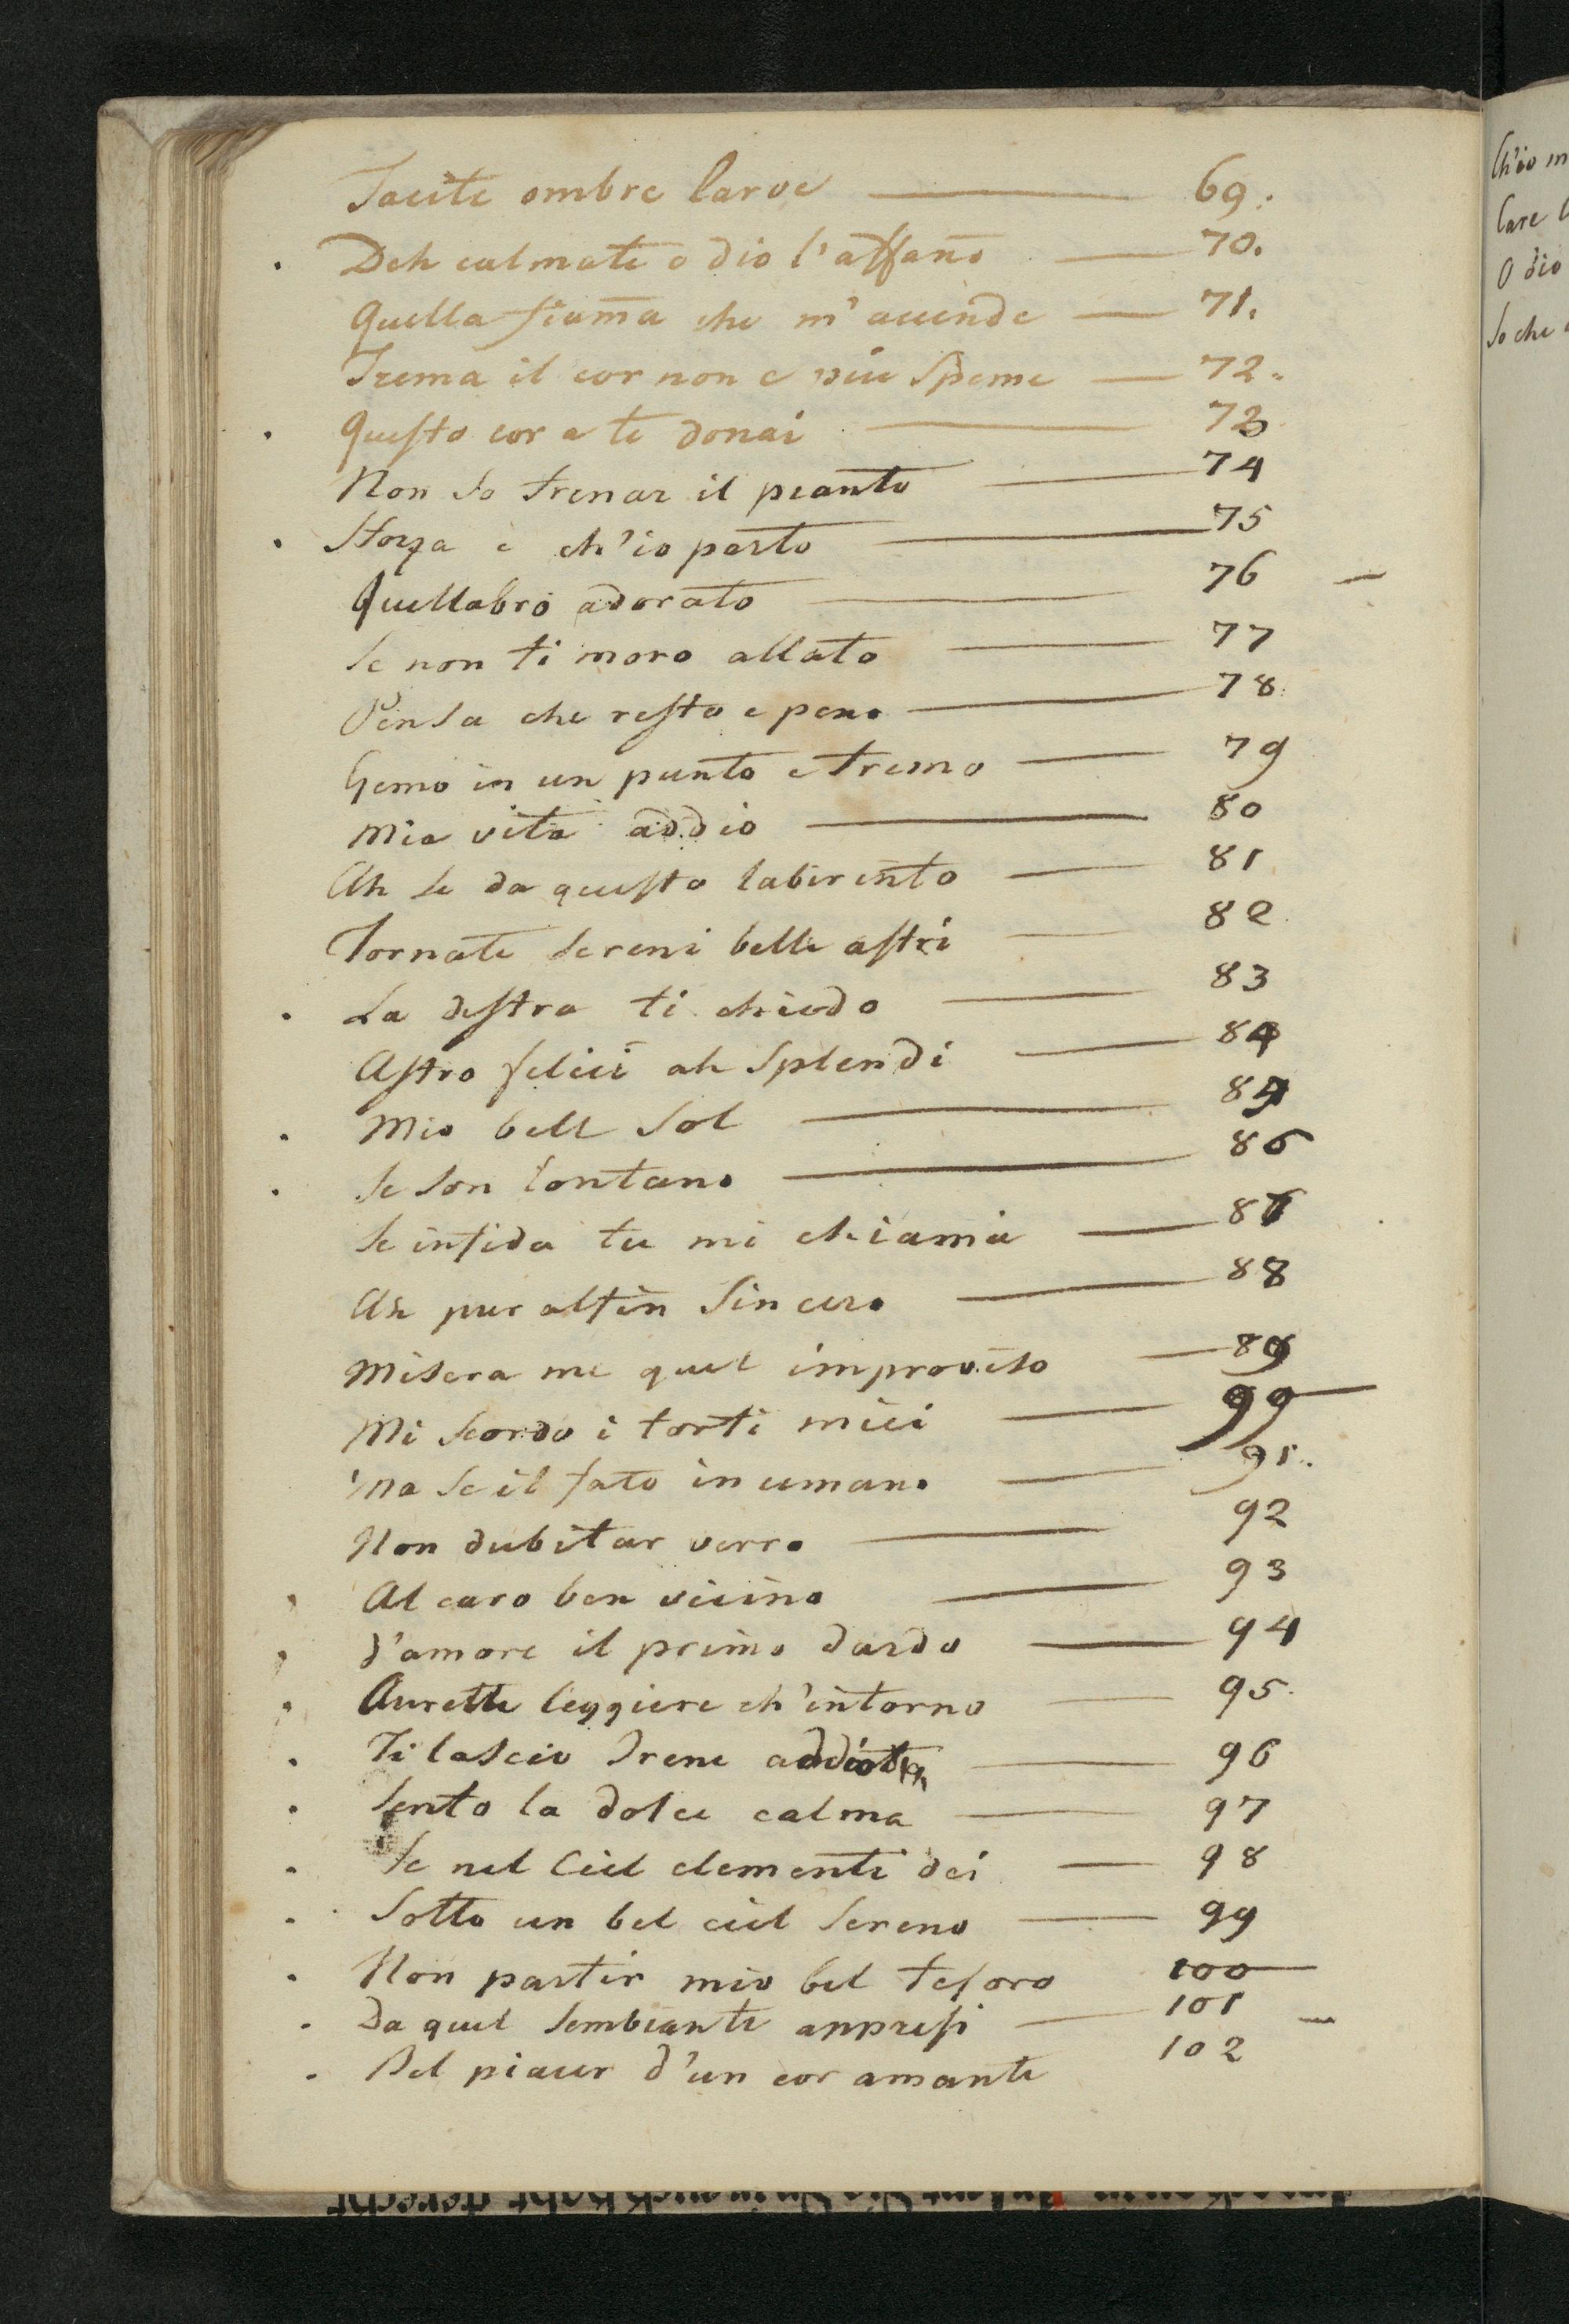 Tacite ombre larve — 69.
Deh calmate o dio l'affano — 70.
Quella fiama che m'accende — 71.
Trema il cor non e piu speme — 72.
Questo cor a te donai — 73
Non so frenar il pianto — 74
Sforza è ch'io parto — 75
Quellabro adorato — 76 —
Se non ti moro allato — 77
Pensa che resto e peno — 78
Gemo in un punto e fremo — 79
Mia vita addio — 80
Ah se da questo labirinto — 81
Tornate sereni belle astri — 82
La destra ti chiedo — 83
Astro felici ah splendi — 84
Mio bell sol —
Se son lontano — 86
Se infida tu mi chiama — 87
Ah pur alfin sincero — 88
Misera me quel improviso — 89
Mi scordo i torti miei —
Ma se il fato inumano — 91.
Non dubitar verro — 92
Al caro ben vicino — 93
d'amore il primo dardo — 94
Aurette leggiere ch'intorno — 95.
Ti lascio Irene — 96
Sento la dolce calma — 97
Se nel Ciel clementi dei — 98
Sotto un bel ciel sereno — 99
Non partir mio bel tesoro 100
Da quel sembiante appresi — 101 —
Nel piacer d'un cor amante 102
Ch'io m
Care
O dio
So che